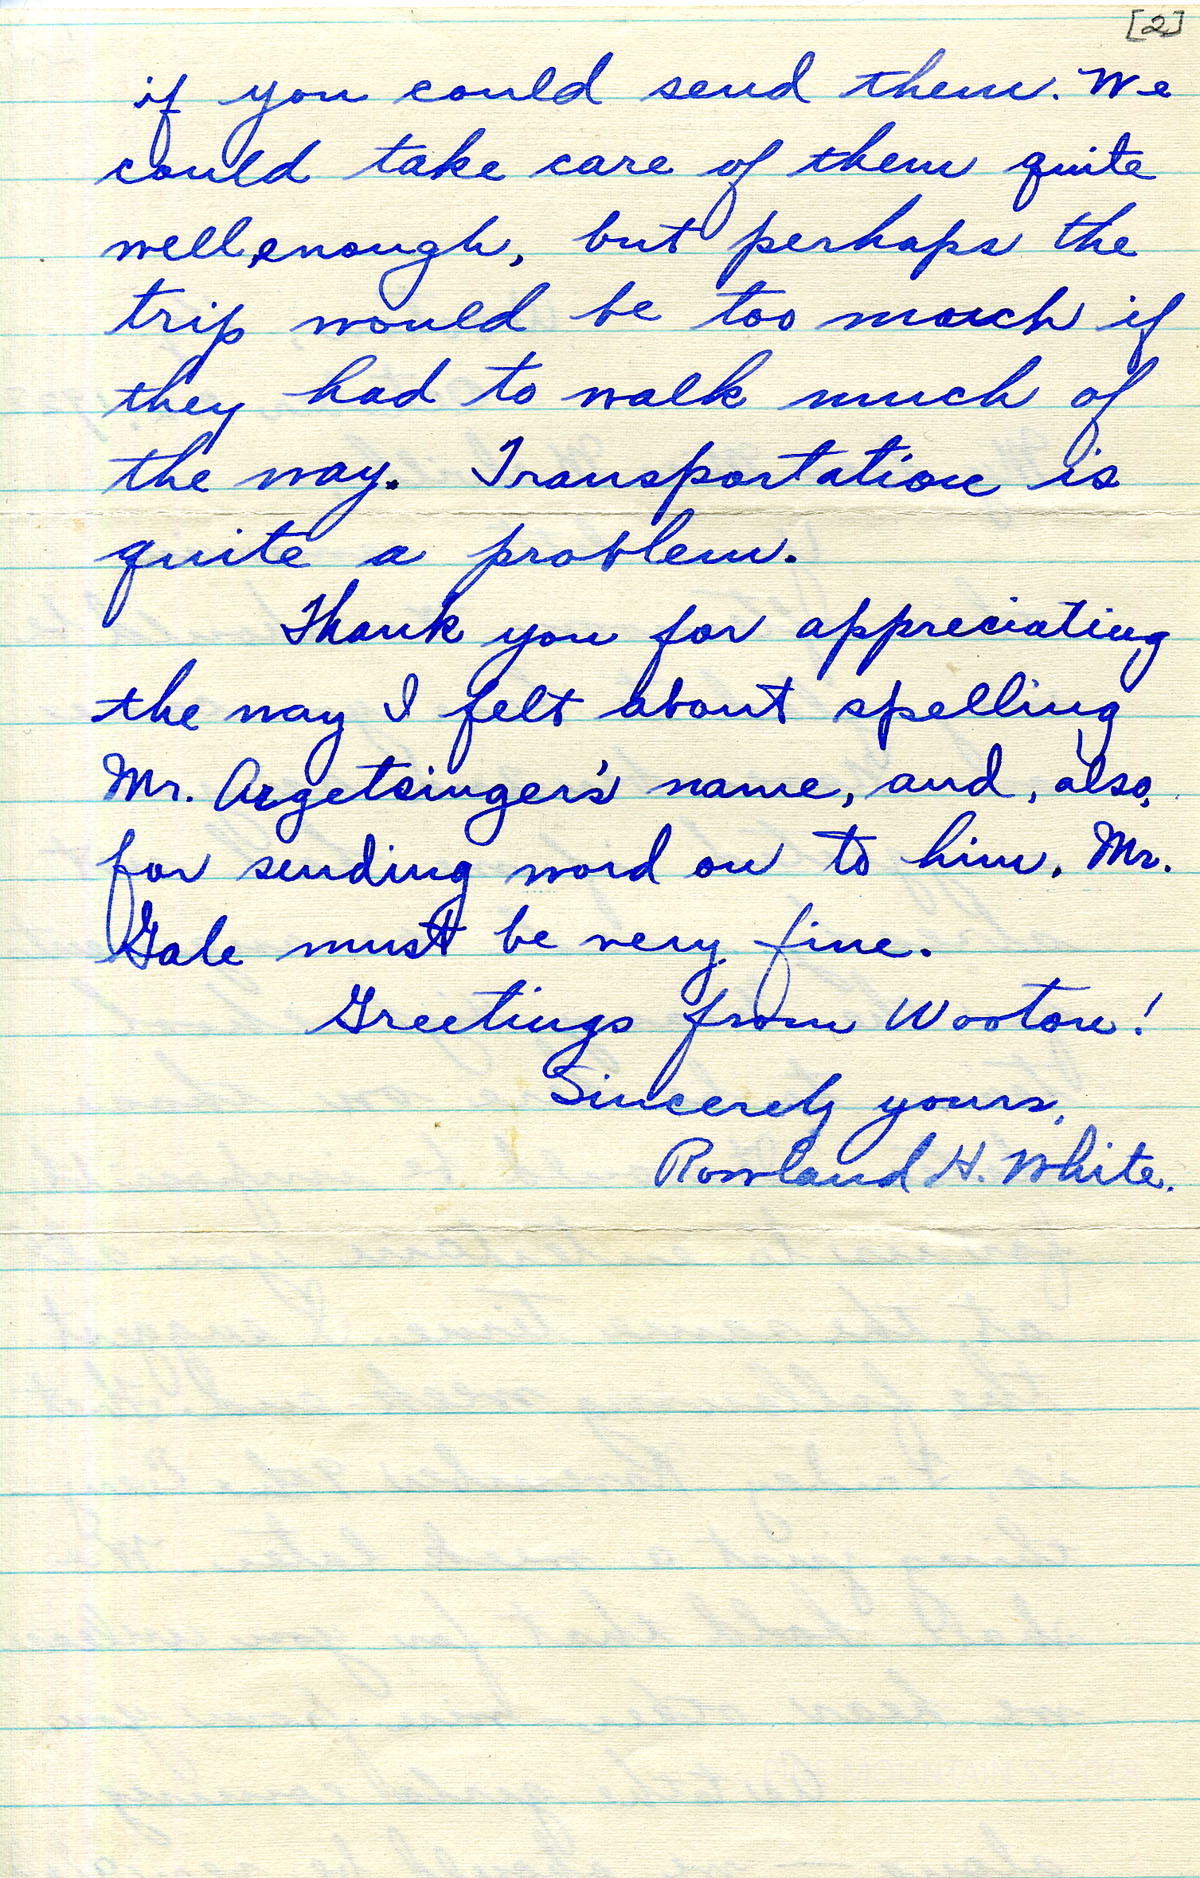 [2]
if you could send them. We
could take care of them quite
well enough, but perhaps the
trip would be too much if
they had to walk much of
the way. Transportation is
quite a problem.
Thank you for appreciating
the way I felt about spelling
Mr. Argetsinger's name, and, also,
for sending word on to him. Mr.
Gale must be very fine.
Greetings from Wooton!
Sincerely yours,
Rowland H. White.